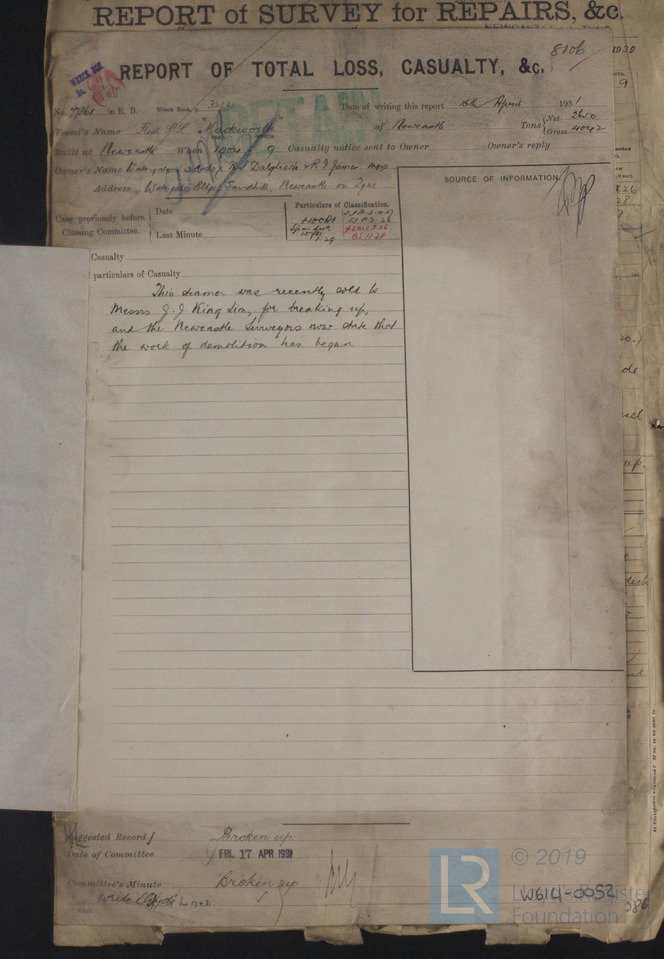 REPORT of SURVEY for REPAIRS, &c.
8106
1930
REPORT OF TOTAL LOSS, CASUALTY, &c.
RETAIN
No. 77361 in R. B. Date of writing this report 16th April 1931
Vessel's Name "Mackworth" of Newcastle Tons Net 2650 Gross 4042
Built at Newcastle When 1904 9 Casualty notice sent to Owner Owner's reply
Owner's Name Watergate R. S. Dalgliesh & R. J. James
Address Watergate Bldgs, Sandhill, Newcastle on Tyne
SOURCE OF INFORMATION
Case previously before Classing Committee.
Date
Last Minute
Particulars of Classification.
+100A1
Casualty
particulars of Casualty
This steamer was recently sold to
Messrs J. J. King &
for breaking up,
and the Newcastle Surveyors now state that
the work of demolition has began
Suggested Record Broken up
Date of Committee FRI. 17 APR 1931
Committee's Minute Broken up
Write
LR
© 2019
Lloyd's Register
Foundation
W614-0052